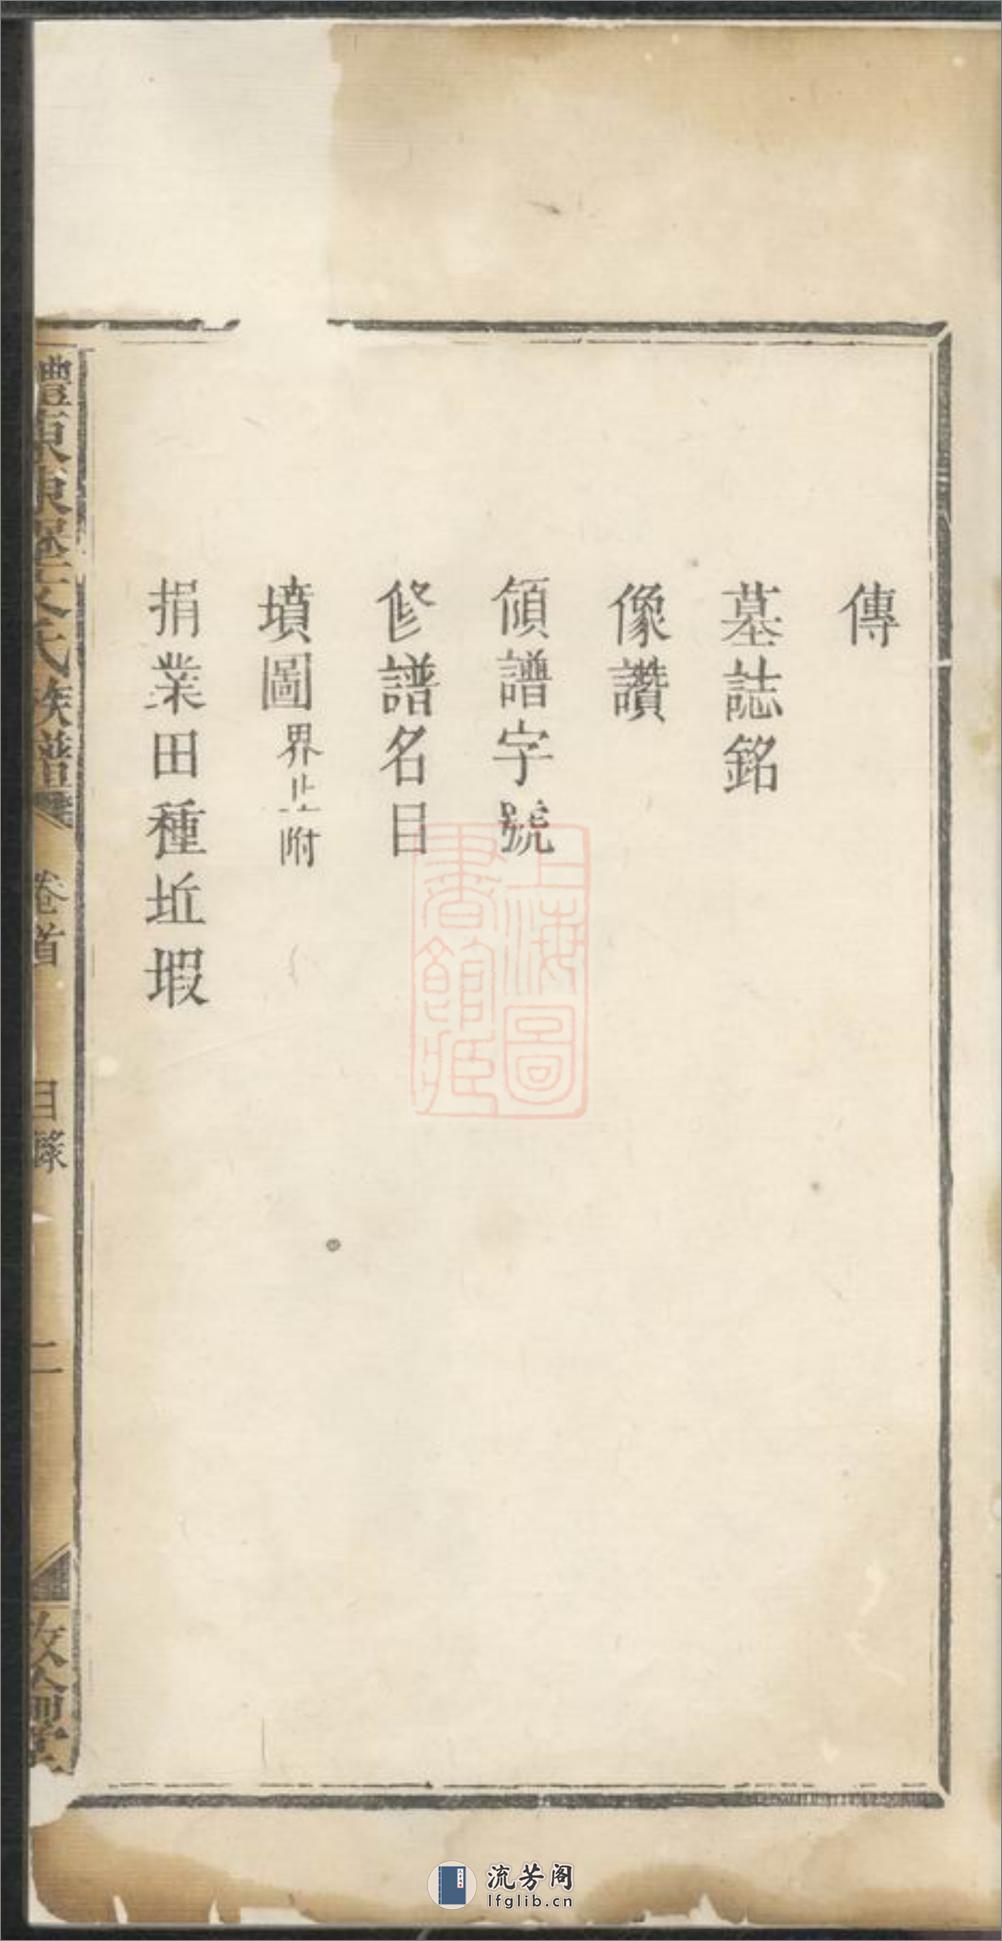 傳
墓誌銘
像讚
領譜字號
修譜名目
墳圖界止附
捐業田種坵瑕
東
氏族譜
卷首
目錄
二
敦倫堂
上海圖
書館藏
流芳阁
lfglib.cn